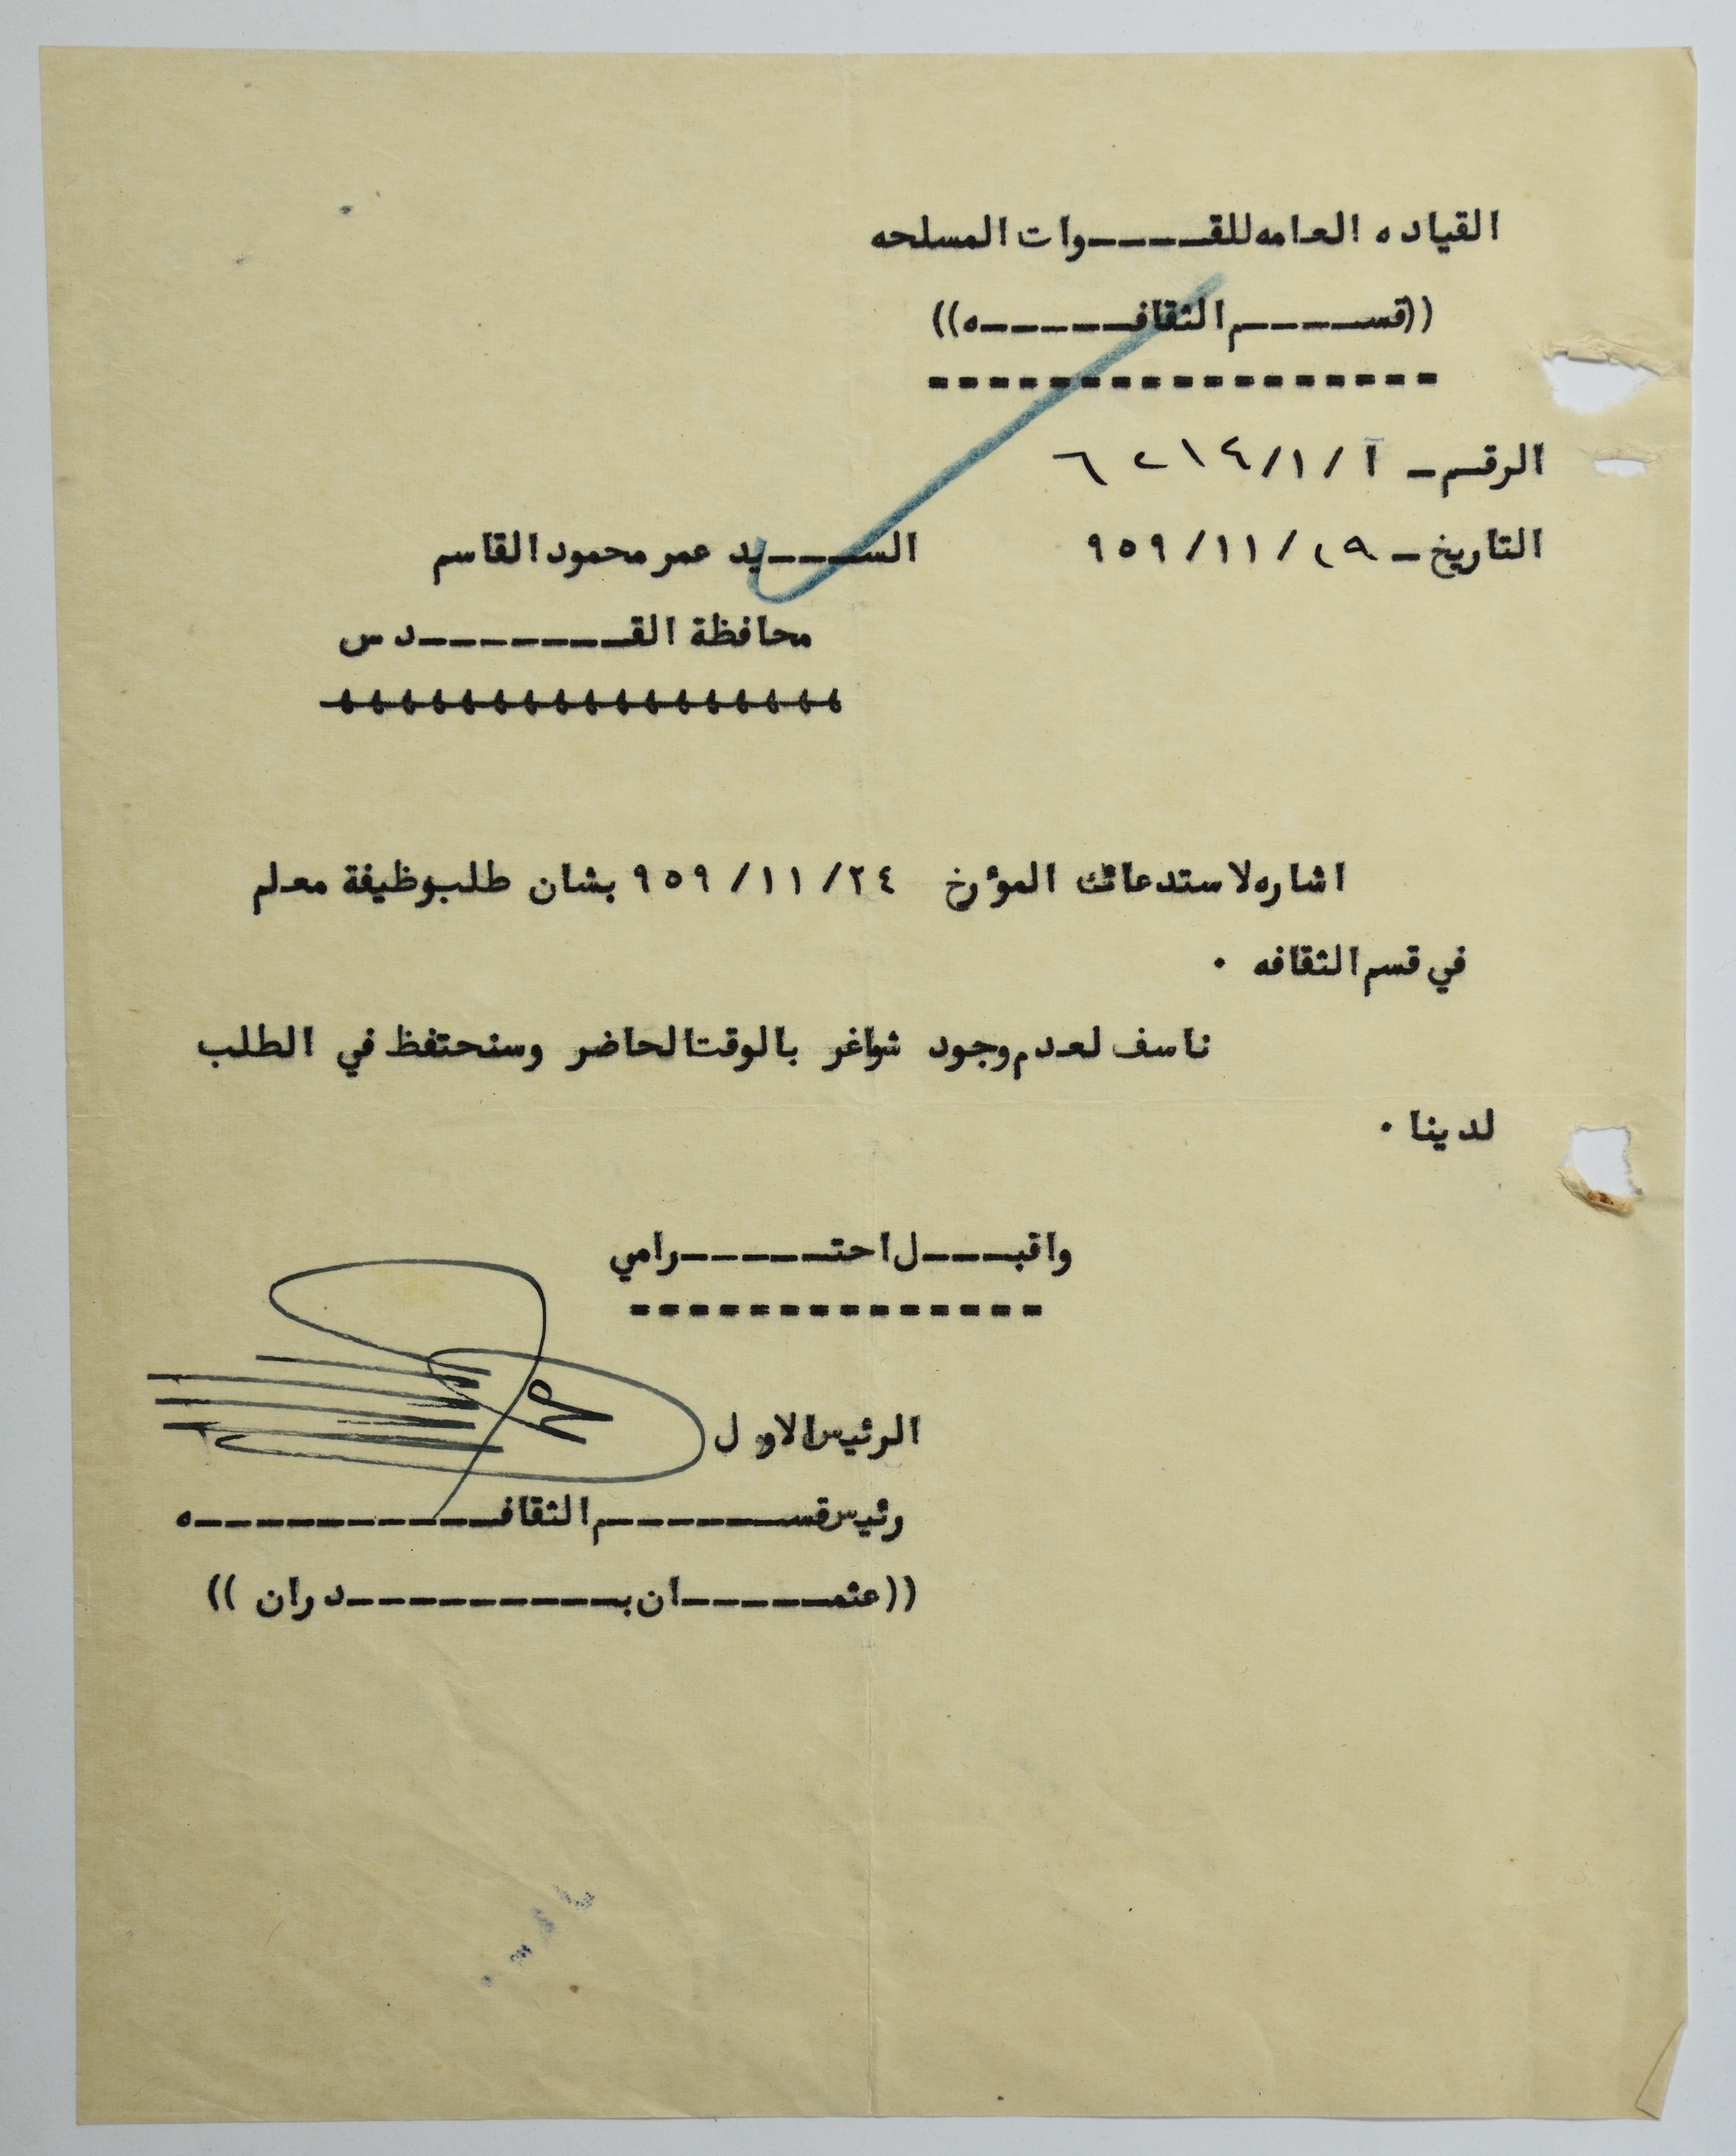 القياده العامه للقـــوات المسلحه
((قســـم الثقافـــه))
الرقـم ـ آ/١/٤/ ٦٢١٤
التاريخ ـ ٢٩/١١/٩٥٩
الســـيد عمر محمود القاسم
محافظة القـــدس
اشاره لاستدعائك المؤرخ ٢٤/١١/٩٥٩ بشان طلب وظيفة معلم
في قسم الثقافه .
ناسف لعدم وجود شواغر بالوقت الحاضر وسنحتفظ في الطلب
لدينا .
واقبـــل احتـــرامي
الرئيس الاول
رئيس قســـم الثقافـــه
((عثمـــان بـــدران))